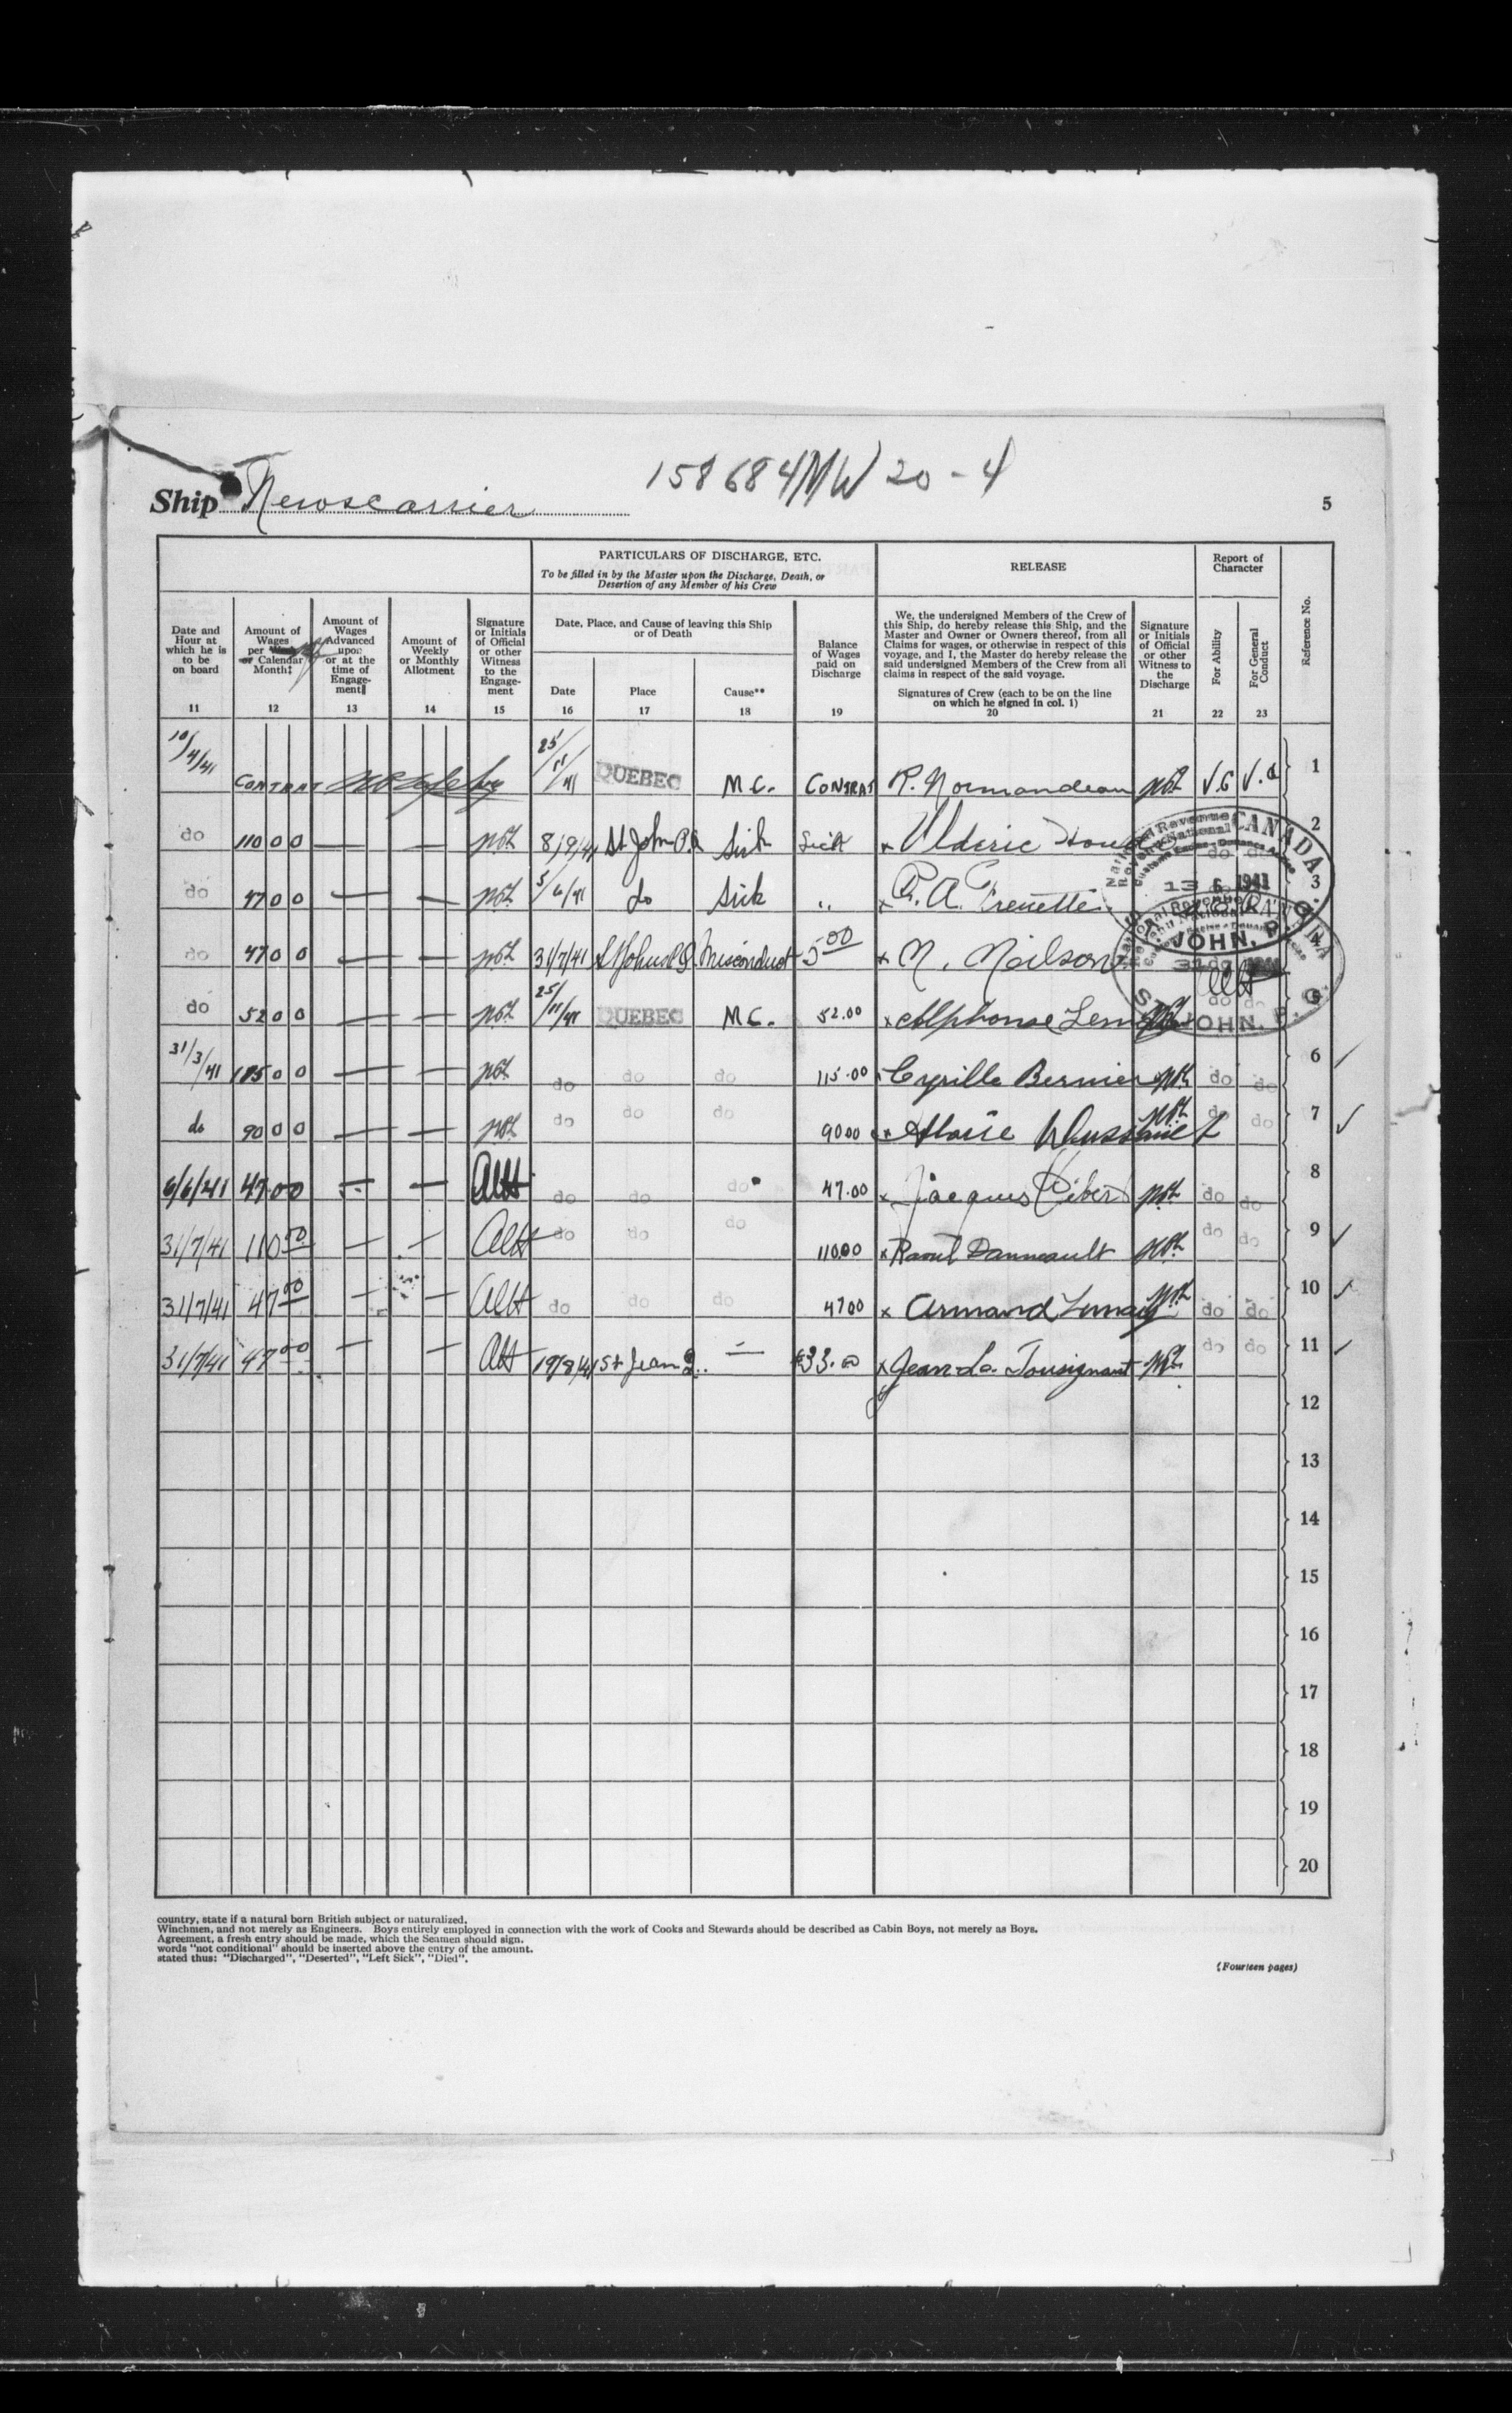 158684 MW 20-4
Ship Newscarrier
5
PARTICULARS OF DISCHARGE, ETC.
To be filled in by the Master upon the Discharge, Death, or
Desertion of any Member of his Crew
RELEASE
Report of
Character
Reference No.
Date and
Hour at
which he is
to be
on board
11
Amount of
Wages
per
or Calendar
Month‡
12
Amount of
Wages
Advanced
upon
or at the
time of
Engage-
ment‖
13
Amount of
Weekly
or Monthly
Allotment
14
Signature
or Initials
of Official
or other
Witness
to the
Engage-
ment
15
Date, Place, and Cause of leaving this Ship
or of Death
Date
16
Place
17
Cause**
18
Balance
of Wages
paid on
Discharge
19
We, the undersigned Members of the Crew of
this Ship, do hereby release this Ship, and the
Master and Owner or Owners thereof, from all
Claims for wages, or otherwise in respect of this
voyage, and I, the Master do hereby release the
said undersigned Members of the Crew from all
claims in respect of the said voyage.
Signatures of Crew (each to be on the line
on which he signed in col. 1)
20
Signature
or Initials
of Official
or other
Witness to
the
Discharge
21
For Ability
22
For General
Conduct
23
10/4/41 CONTRAT 25/11/41 QUEBEC M.C. CONTRAT R. Normandeau V.G V.G 1
do 110 00 — — 8/9/41 St John P.Q Sick Sick x Ulderic do 2
do 47 00 — — 5/6/41 do Sick " x R. A. Frenette 3
do 47 00 — — 31/7/41 St Johns P.Q. Misconduct 5 00 x N. Neilson 4
do 52 00 — — 25/11/41 QUEBEC M.C. 52.00 x Alphonse do do 5
31/3/41 — — do do do 115.00 x Cyrille Bernier do do 6 ✓
do 90 00 — — do do do 90 00 x do do 7 ✓
6/6/41 47.00 — — do do do 47.00 x Jacques do do 8
31/7/41 110 50 — — do do do 110.00 x Raoul Danneault do do 9 ✓
31/7/41 47 00 — — do do do 47 00 x Armand Lemay do do 10 ✓
31/7/41 47 00 — — 19/8/41 St Jean Q. — 33.00 x Jean-La. Tousignant do do 11 ✓
National Revenue
CANADA
13 6 1941
ST. JOHN, P. Q.
ST. JOHN, P. Q.
12
13
14
15
16
17
18
19
20
country, state if a natural born British subject or naturalized.
Winchmen, and not merely as Engineers. Boys entirely employed in connection with the work of Cooks and Stewards should be described as Cabin Boys, not merely as Boys.
Agreement, a fresh entry should be made, which the Seamen should sign.
words "not conditional" should be inserted above the entry of the amount.
stated thus: "Discharged", "Deserted", "Left Sick", "Died".
(Fourteen pages)